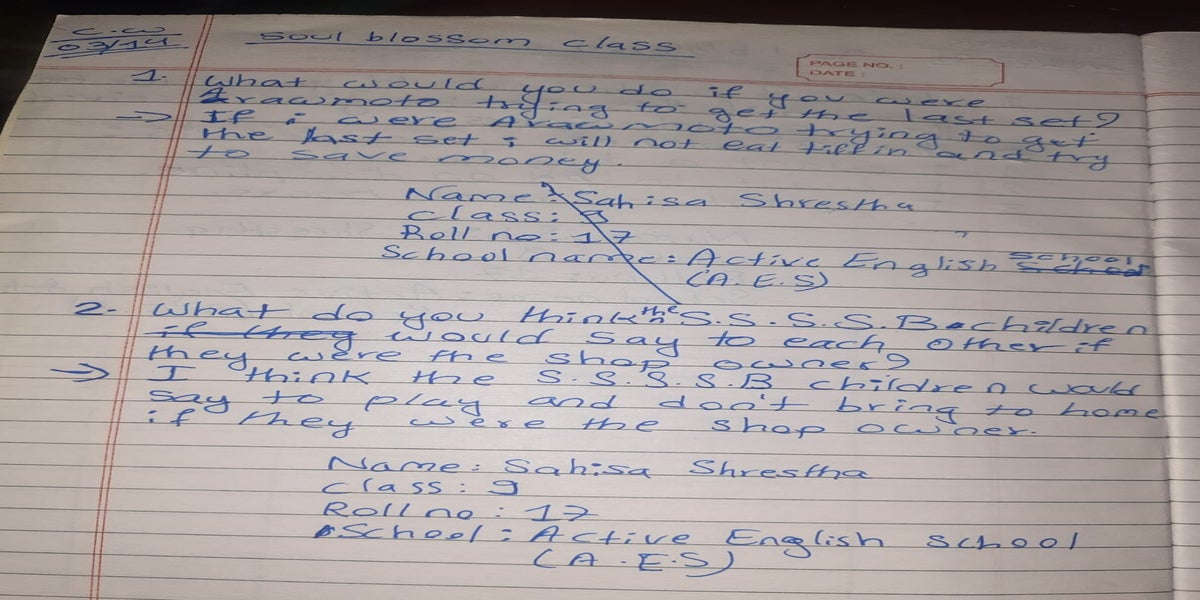 C.W
03/14
Soul blossom class
PAGE NO. :
DATE :
1. What would you do if you were
Arawmoto trying to get the last set?
=> If i were Arawmoto trying to get
the last set i will not eat tiffin and try
to save money.
Name: Sahisa Shrestha
Class: 9
Roll no: 17
School name: Active English School
(A.E.S)
2. What do you think the S.S.S.S.B children
if they would say to each other if
they were the shop owner?
=> I think the S.S.S.S.B children would
say to play and don't bring to home
if they were the shop owner.
Name: Sahisa Shrestha
Class: 9
Roll no: 17
School: Active English School
(A.E.S)